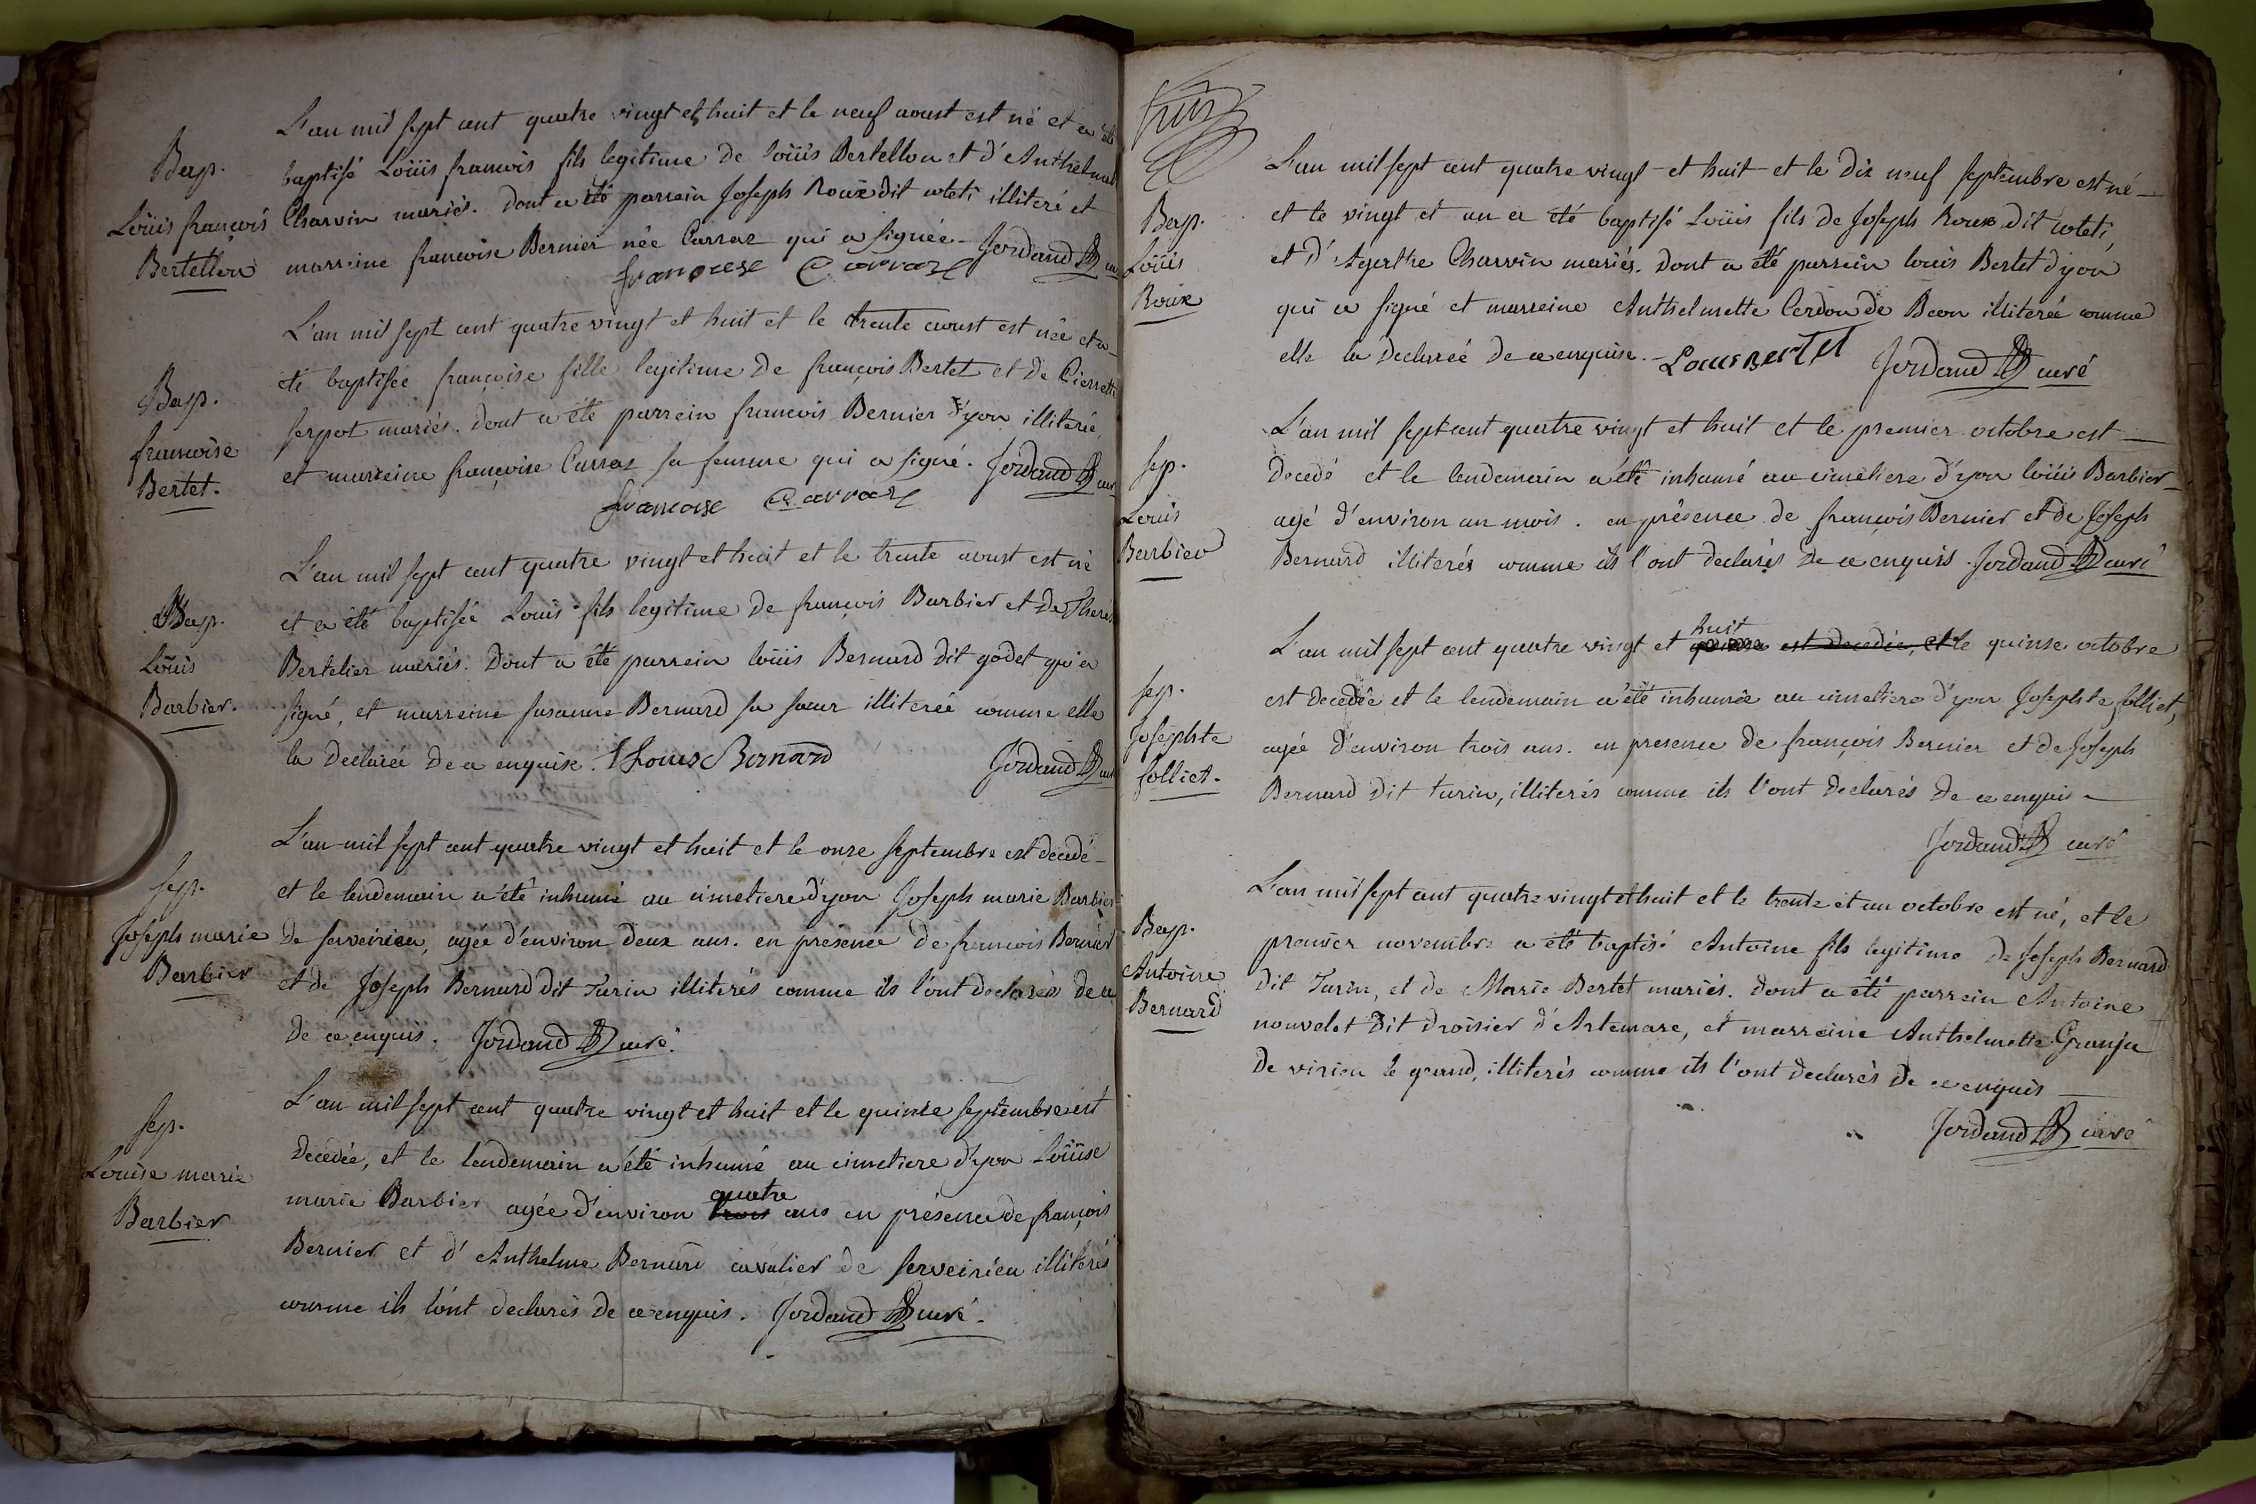 Bap.
Loüis françois
Bertellon
L'an mil sept cent quatre vingt et huit et le neuf aoust est né et a été
baptisé Loüis francois fils legitime de loüis Bertellon et d'Anthelmet
Charvin mariés. Dont a été parrein Joseph Roux dit coteti illiteré et
marreine francoise Bernier née Carraz qui a signée - Jordand curé
francoise Carraz
Bap.
francoise
Bertet.
L'an mil sept cent quatre vingt et huit et le trente aoust est née et a
été baptisée françoise fille legitime de françois Bertet et de Pierrette
serpot mariés. Dont a été parrein francois Bernier d'yon illiteré
et marreine françoise Carraz sa femme qui a signé. Jordand curé
francoise Carraz
Bap.
loüis
Barbier.
L'an mil sept cent quatre vingt et huit et le trente aoust est né
et a été baptisée Louis fils legitime de françois Barbier et de Therese
Bertelier mariés. Dont a été parrein loüis Bernard dit godet qui a
signé, et marreine susanne Bernard sa sœur illiterée comme elle
la declarée de ce enquise. Louis Bernard Jordand curé
sep.
Joseph marie
Barbier
L'an mil sept cent quatre vingt et huit et le onze septembre est decedé -
et le lendemain a été inhumé au cimetiere d'yon Joseph marie Barbier
de serveirieu, agée d'environ deux ans. en presence de francois Bernier
et de Joseph Bernard dit Turin illiterés comme ils l'ont declarés de ce
de ce enquis. Jordand curé.
sep.
Louise marie
Barbier
L'an mil sept cent quatre vingt et huit et le quinze septembre est
decedée, et le lendemain a été inhumé au cimetiere d'yon Loüise
quatre
marie Barbier agée d'environ trois ans en présence de françois
Bernier et d'Anthelme Bernard cavalier de serveirieu illiterés
comme ils l'ont declarés de ce enquis. Jordand curé.
Bap.
Loüis
Roux
L'an mil sept cent quatre vingt et huit et le dix neuf septembre est né -
et le vingt et un a été baptisé Loüis fils de Joseph Roux dit coteti,
et d'Agathe Charvin mariés. Dont a été parrein louis Bertet d'yon
qui a signé et marreine Anthelmette Cerdon de Beon illiterée comme
elle la declareé de ce enquise. Louis Bertet Jordand curé
sep.
Louis
Barbier
L'an mil sept cent quatre vingt et huit et le premier octobre est -
decedé et le lendemain a été inhumé au cimetiere d'yon loüis Barbier
agé d'environ un mois. en présence de françois Bernier et de Joseph
Bernard illiterés comme ils l'ont declarés de ce enquis. Jordand curé
sep.
Josephte
folliet.
huit
L'an mil sept cent quatre vingt et quinze est decedée, et le quinse octobre
est decedée et le lendemain a été inhumée au cimetiere d'yon Josephte folliet,
agée d'environ trois ans. en presence de françois Bernier et de Joseph
Bernard dit turin, illiterés comme ils l'ont declarés de ce enquis -
Jordand curé
Bap.
Antoine
Bernard
L'an mil sept cent quatre vingt et huit et le trente et un octobre est né, et le
premier novembre a été baptisé Antoine fils legitime de Joseph Bernard
dit Turin, et de Marie Bertet mariés. dont a été parrein Antoine
nouvelet dit droisier d'Artemare, et marreine Anthelmette Granju
de virieu le grand, illiterés comme ils l'ont declarés de ce enquis
Jordand curé